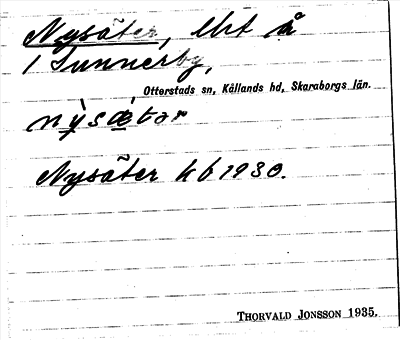 Nysäter, lht å
1 Sunnerby,
Otterstads sn, Kållands hd, Skaraborgs län.
nỳsǽtər
Nysäter kb 1930.
THORVALD JONSSON 1935.